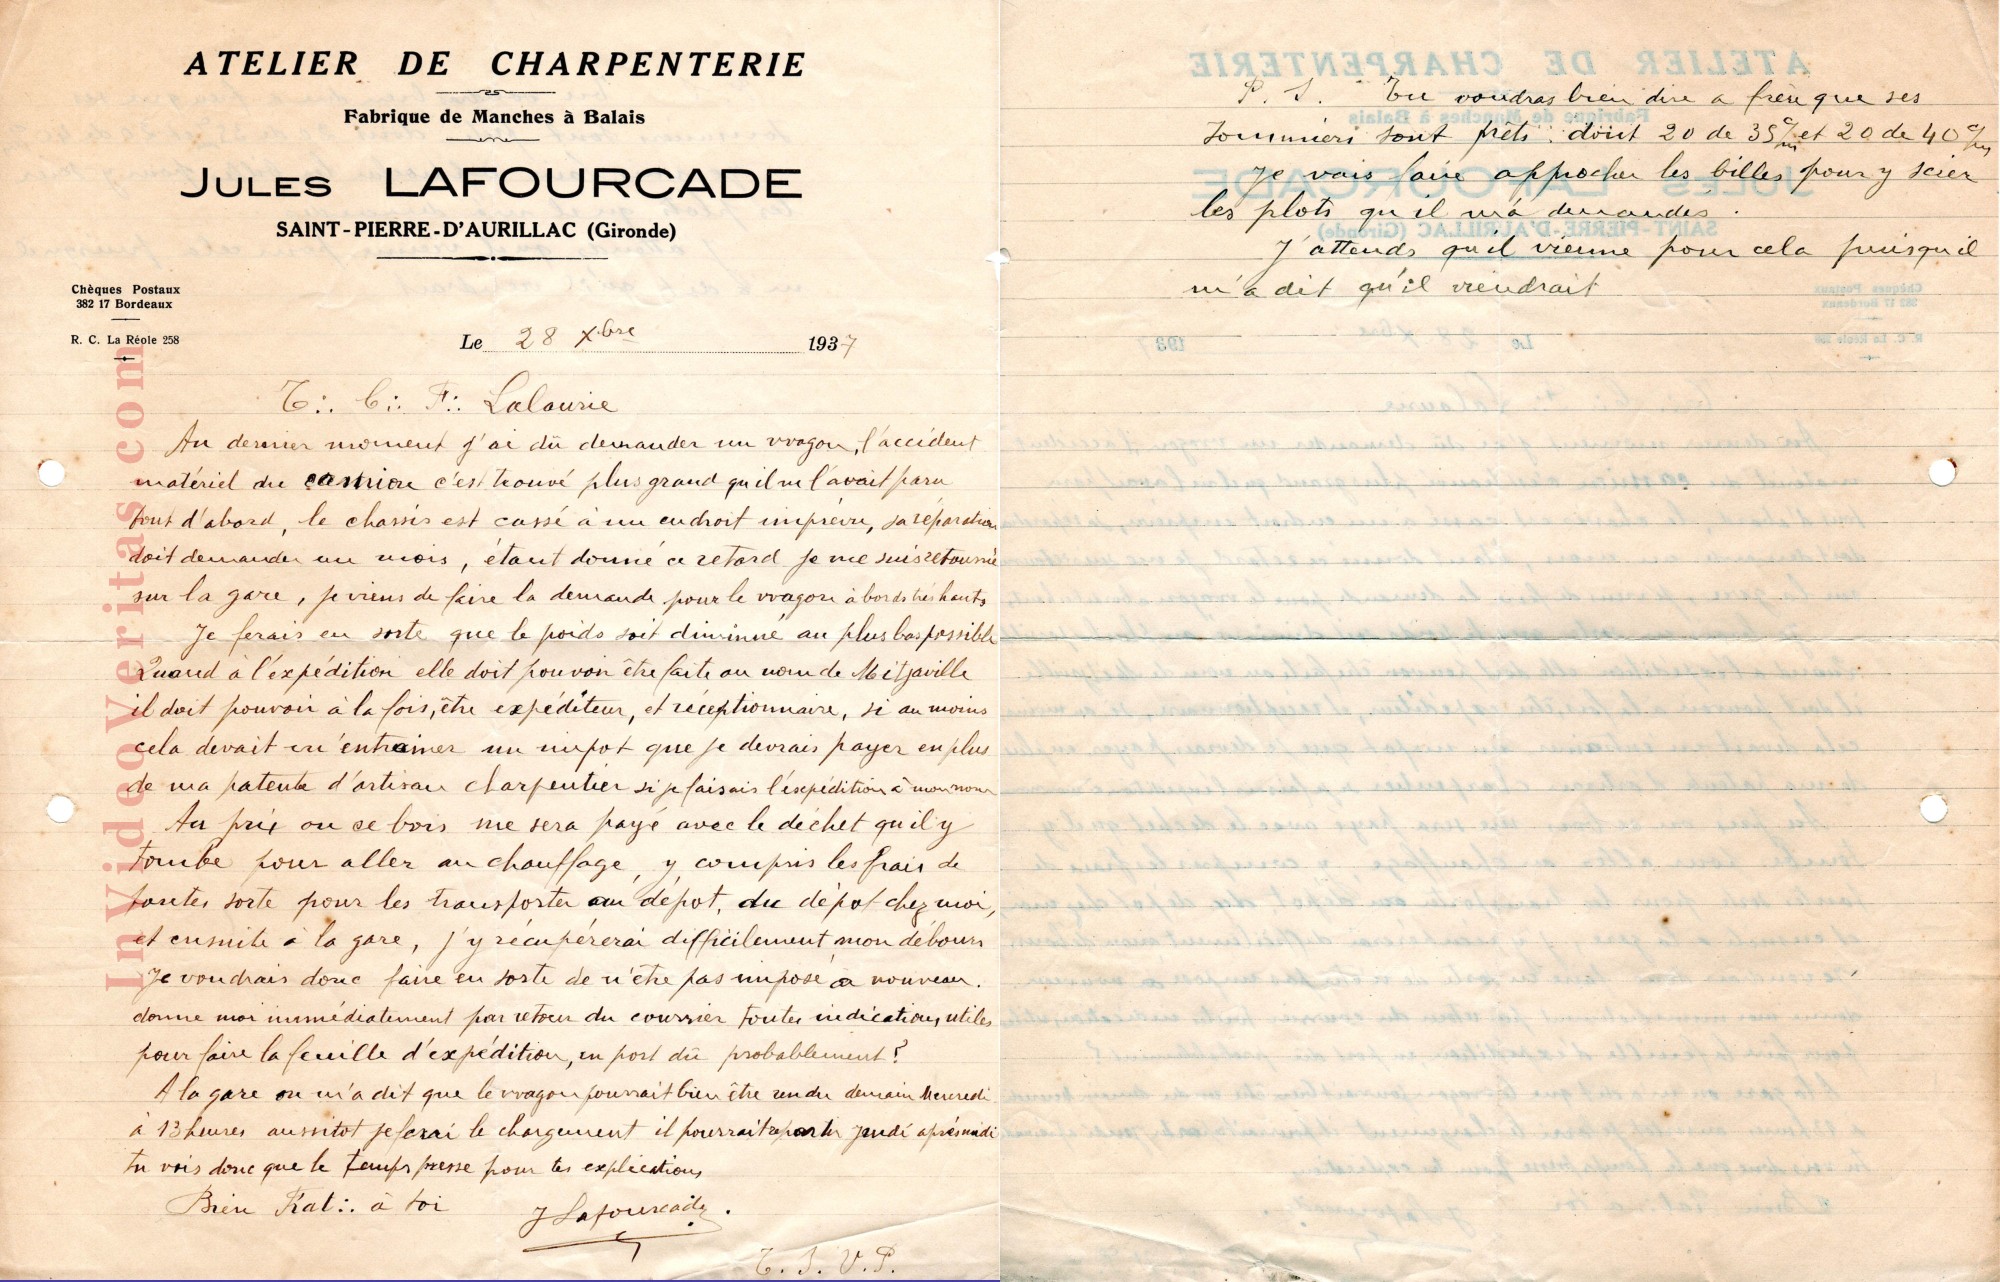 ATELIER DE CHARPENTERIE
Fabrique de Manches à Balais
JULES LAFOURCADE
SAINT-PIERRE-D'AURILLAC (Gironde)
Chèques Postaux
382 17 Bordeaux
R. C. La Réole 258
Le 28 Xbre 1937
T∴ C∴ F∴ Lalaurie
Au dernier moment j'ai dû demander un wagon, l'accident
matériel du camion c'est trouvé plus grand qu'il ne l'avait paru
tout d'abord, le chassis est cassé à un endroit imprévu, sa réparation
doit demander un mois, étant donné ce retard je me suis retourné
sur la gare, je viens de faire la demande pour le wagon à bords très hauts
Je ferais en sorte que le poids soit diminué au plus bas possible
Quand à l'expédition elle doit pouvoir être faite au nom de Mitjaville
il doit pouvoir à la fois, être expéditeur, et réceptionnaire, si au moins
cela devait m'entrainer un impot que je devrais payer en plus
de ma patente d'artisan charpentier si je faisais l'expédition à mon nom
Au prix ou ce bois me sera payé avec le déchet qu'il y
tombe pour aller au chauffage, y compris les frais de
toutes sorte pour les transporter au dépot, du dépot chez moi,
et ensuite à la gare, j'y récupérerai difficilement mon débours
Je voudrais donc faire en sorte de n'être pas imposé à nouveau.
donne moi immédiatement par retour du courrier toutes indications utiles
pour faire la feuille d'expédition, en port dû probablement?
A la gare on m'a dit que le wagon pourrait bien être rendu demain Mercredi
à 13 heures aussitot je ferai le chargement il pourrait repartir jeudi après midi
tu vois donc que le temps presse pour tes explications
Bien Frat∴ à toi
J Lafourcade.
T. S. V. P.
P. S. Tu voudras bien dire a frère que ses
sommiers sont prêts. dont 20 de 35 c/m et 20 de 40 c/m
Je vais faire approcher les billes pour y scier
les plots qu'il m'a demandés.
J'attends qu'il vienne pour cela puisqu'il
m'a dit qu'il viendrait
InVideoVeritas.com